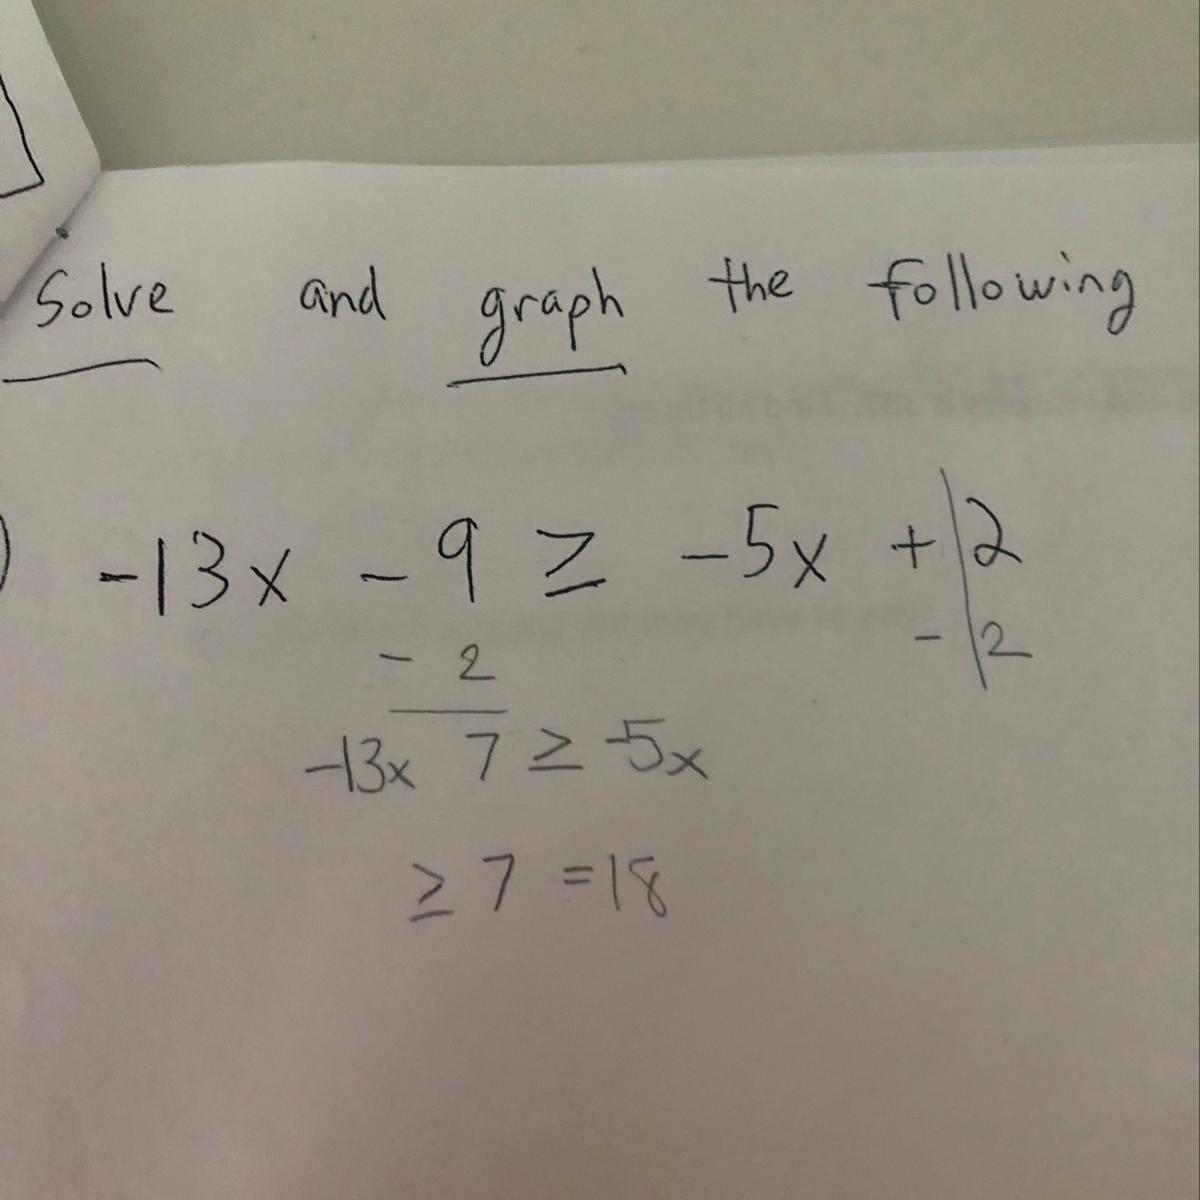 Solve and graph the following
) -13x - 9 ≥ -5x + 2
- 2 - 2
-13x 7 ≥ -5x
≥ 7 = 18